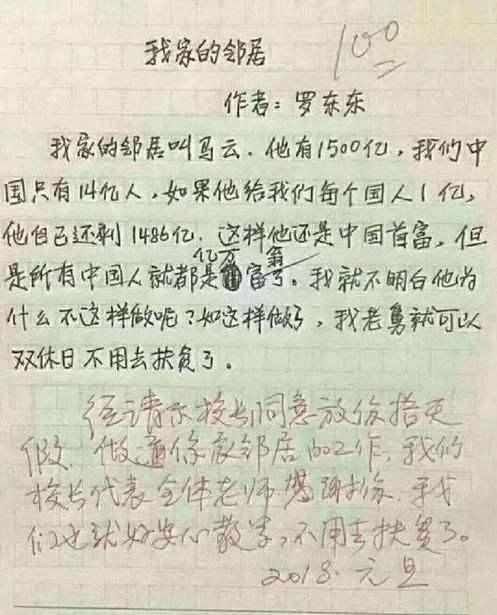 我家的邻居
100
作者:罗东东
我家的邻居叫马云.他有1500亿,我们中
国只有14亿人,如果他给我们每个国人1亿,
他自己还剩1486亿.这样他还是中国首富,但
是所有中国人就都是亿万富翁了。我就不明白他为
什么不这样做呢?如这样做了,我老舅就可以
双休日不用去扶贫了。
经请示校长同意放你搭天
假.做通你家邻居的工作.我们
校长代表全体老师感谢你.我
们也就好安心教学,不用去扶贫了。
2018.元旦